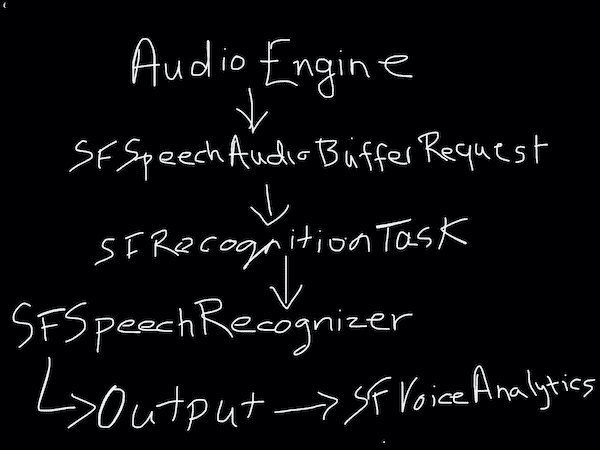 Audio Engine
SFSpeechAudioBufferRequest
SFRecognitionTask
SFSpeechRecognizer
Output → SFVoiceAnalytics